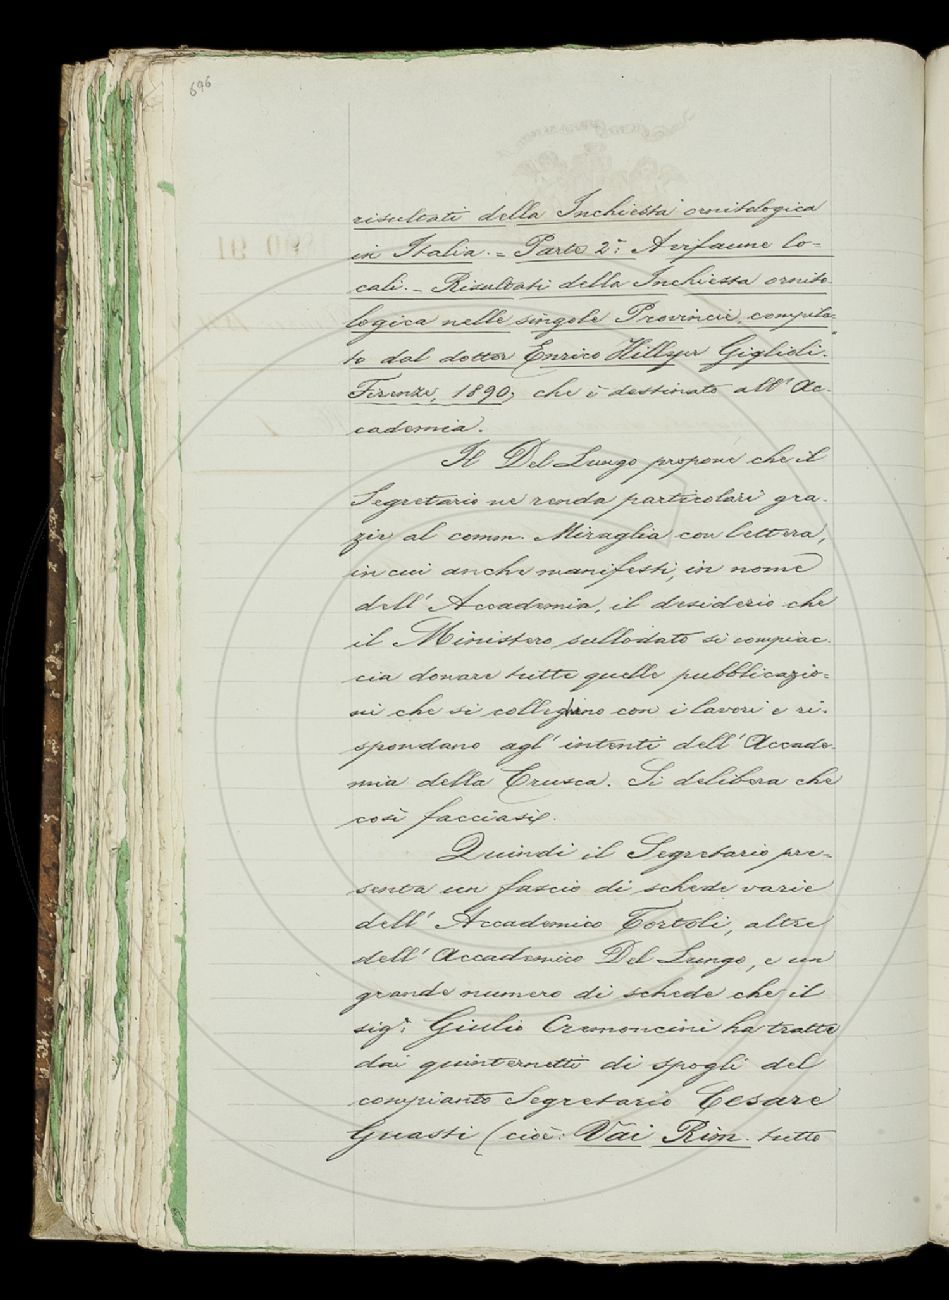 696
risultati della Inchiesta ornitologica
in Italia. = Parte 2ª: Avifaune lo-
cali. - Risultati della Inchiesta ornito
logica nelle singole Provincie, compila-
to dal dottor Enrico Hillyer Giglioli.
Firenze, 1890, che è destinato all'Ac-
cademia.
Il Del Lungo propone che il
Segretario ne renda particolari gra-
zie al comm. Miraglia con lettera,
in cui anche manifesti, in nome
dell'Accademia, il desiderio che
il Ministero sullodato si compiac-
cia donare tutte quelle pubblicazio-
ni che si colleghino con i lavori e ri-
spondano agl'intenti dell'Accade-
mia della Crusca. Si delibera che
così facciasi.
Quindi il Segretario pre-
senta un fascio di schede varie
dell'Accademico Tortoli, altre
dell'Accademico Del Lungo, e un
grande numero di schede che il
sigr. Giulio Cremoncini ha tratte
dai quinternetti di spogli del
compianto Segretario Cesare
Guasti (cioè: Vai Rim. tutto